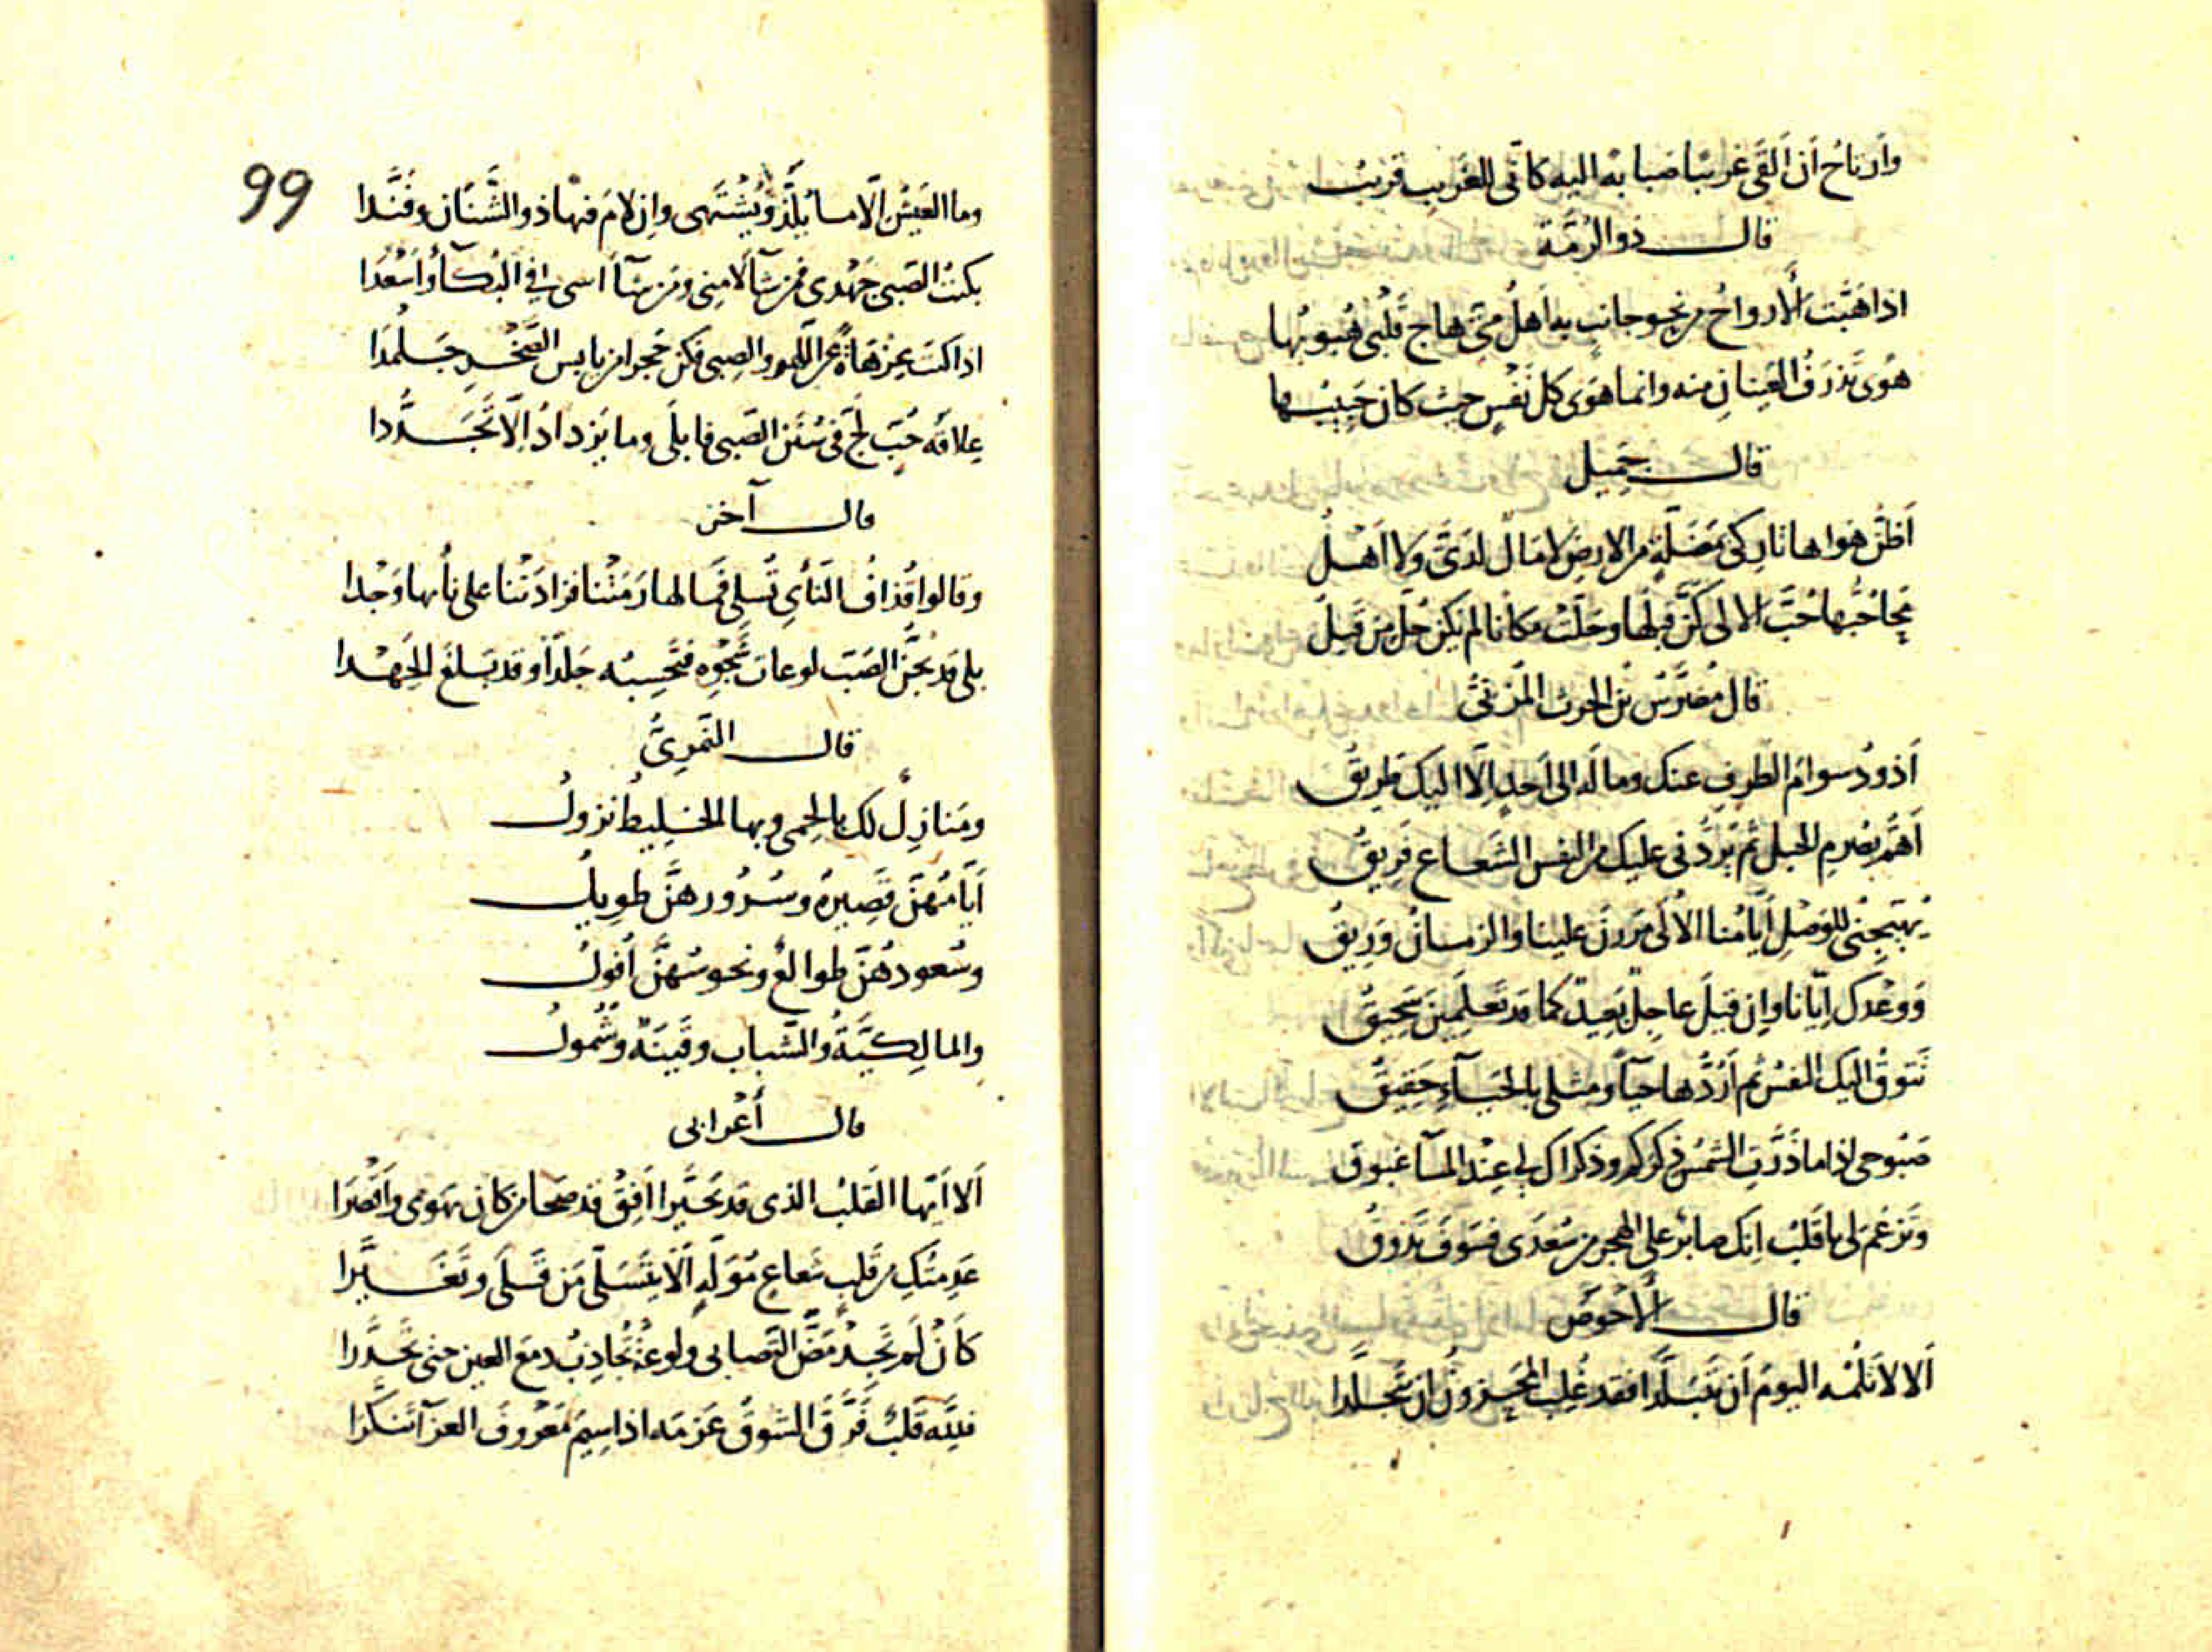 وأرتاح أن ألقى غريبا صبابة اليه كأني للغريب قريب
قال ذو الرُمّة
اذا هَبّت الأرواح من نحو جانب به أهلُ ميّ هاج قلبي هُبوبُها
هوًى تَذرَفُ العَينانِ منه وانما هَوَى كل نَفسٍ حيث كان حَبيبُها
قال جميل
أظُنّ هواها تاركي بمَضَلّةٍ من الارض لا مالٌ لدَيَّ ولا اهلُ
محا حُبُّها حُبَّ الالى كُنَّ قبلَها وحَلّت مكانا لم يكن حُلّ من قبلُ
قال مُضرّس بن الحرث المُزنيّ
أذودُ سوامَ الطَرفِ عنك وما له الى أحدٍ إلّا اليك طريقُ
أهُمّ بصرمِ الحبل ثم يردُّني عليك من النفس الشَعاع فريقُ
يُهيّجني للوَصلِ أيّامُنا الأُلى مَررنَ علينا والزمان وَريقُ
وَوعدُك إيّانا وإن قيلَ عاجلٌ بَعيدٌ كما قد تَعلمينَ سَحيقُ
تَتوقُ اليك النفسُ ثم أرُدُّها حياءً ومثلي بالحياءِ حَقيقُ
صَبوحي اذا ما ذَرّتِ الشمسُ ذكركم وذكراكِ لي عِند المساء غبوق
وتَزعُم لي يا قلبُ انك صابرٌ على الهجر من سُعدى فسَوفَ تذوقُ
قال الأحوص
ألا لا تَلُمه اليومَ أن يَتبلّدا فقد غُلِب المحزونُ أن يتجلّدا
99
وما العَيشُ إلّا ما يُلَذّ ويُشتهى وإن لامَ فيها ذو الشَّنَان وفَنَّدا
بكيتُ الصبى جَهدي فمن شاء لامني ومن شاء اسى في البُكاء وأسعَدا
اذا كنت عِزهاةً عن اللهو والصبى فكن حجرا من يابس الصَّخر جَلمَدا
علاقه حُبّ لجّ في سُنَن الصبى فابلى وما يَزدادُ إلّا تَجدُّدا
قال آخر
وقالوا قُذافُ النَأي تُسلي فما لها رَمَتنا فزادَتنا على نأيها وَجدا
بلى قد يُجنّ الصَبّ لوعات شجوِه فتَحسِبُه جَلدًا وقد بَلغَ الجَهدا
قال النَمَريُّ
ومَنازِلٌ لك بالحِمى وبها الخليطُ نزولُ
أيّامُهنّ قَصيرةٌ وسُرُورهنَّ طويلُ
وسُعودهُنّ طوالعٌ ونحوسُهنَّ أُفولُ
والمالِكيّةُ والشّباب وقَينَةٌ وشَمولُ
قال أعرابي
ألا أيّها القَلبُ الذي قد تحَيّرا أفِق قد صَحا من كان يهوى وأقصَرا
عَدِمتُكِ من قلبٍ شَعاعٍ مُوَلّهٍ ألا يتَسَلّى مَن قَلى وتغَيّرا
كأن لم تجد مَضَّ التَصابي ولوعةً تُجاذِبُ دمعَ العين حتى تحَدّرا
فلِلّه قلبٌ فَرّقَ الشوقُ عَزمَه اذا سِيمَ مَعروفَ العزاء تَنكّرا